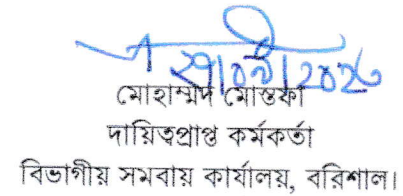 মোহাম্মদ মোস্তফা
দায়িত্বপ্রাপ্ত কর্মকর্তা
বিভাগীয় সমবায় কার্যালয়, বরিশাল।